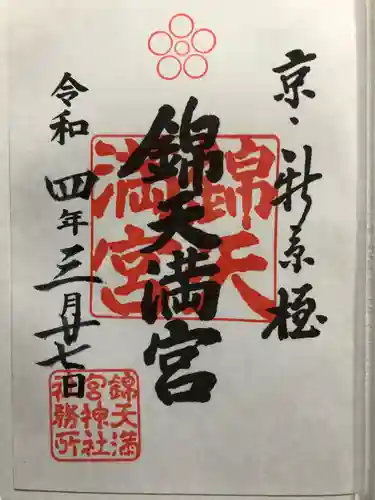 京・新京極
錦天満宮
令和四年三月廿七日
錦天
満宮
錦天満
宮神社
務所